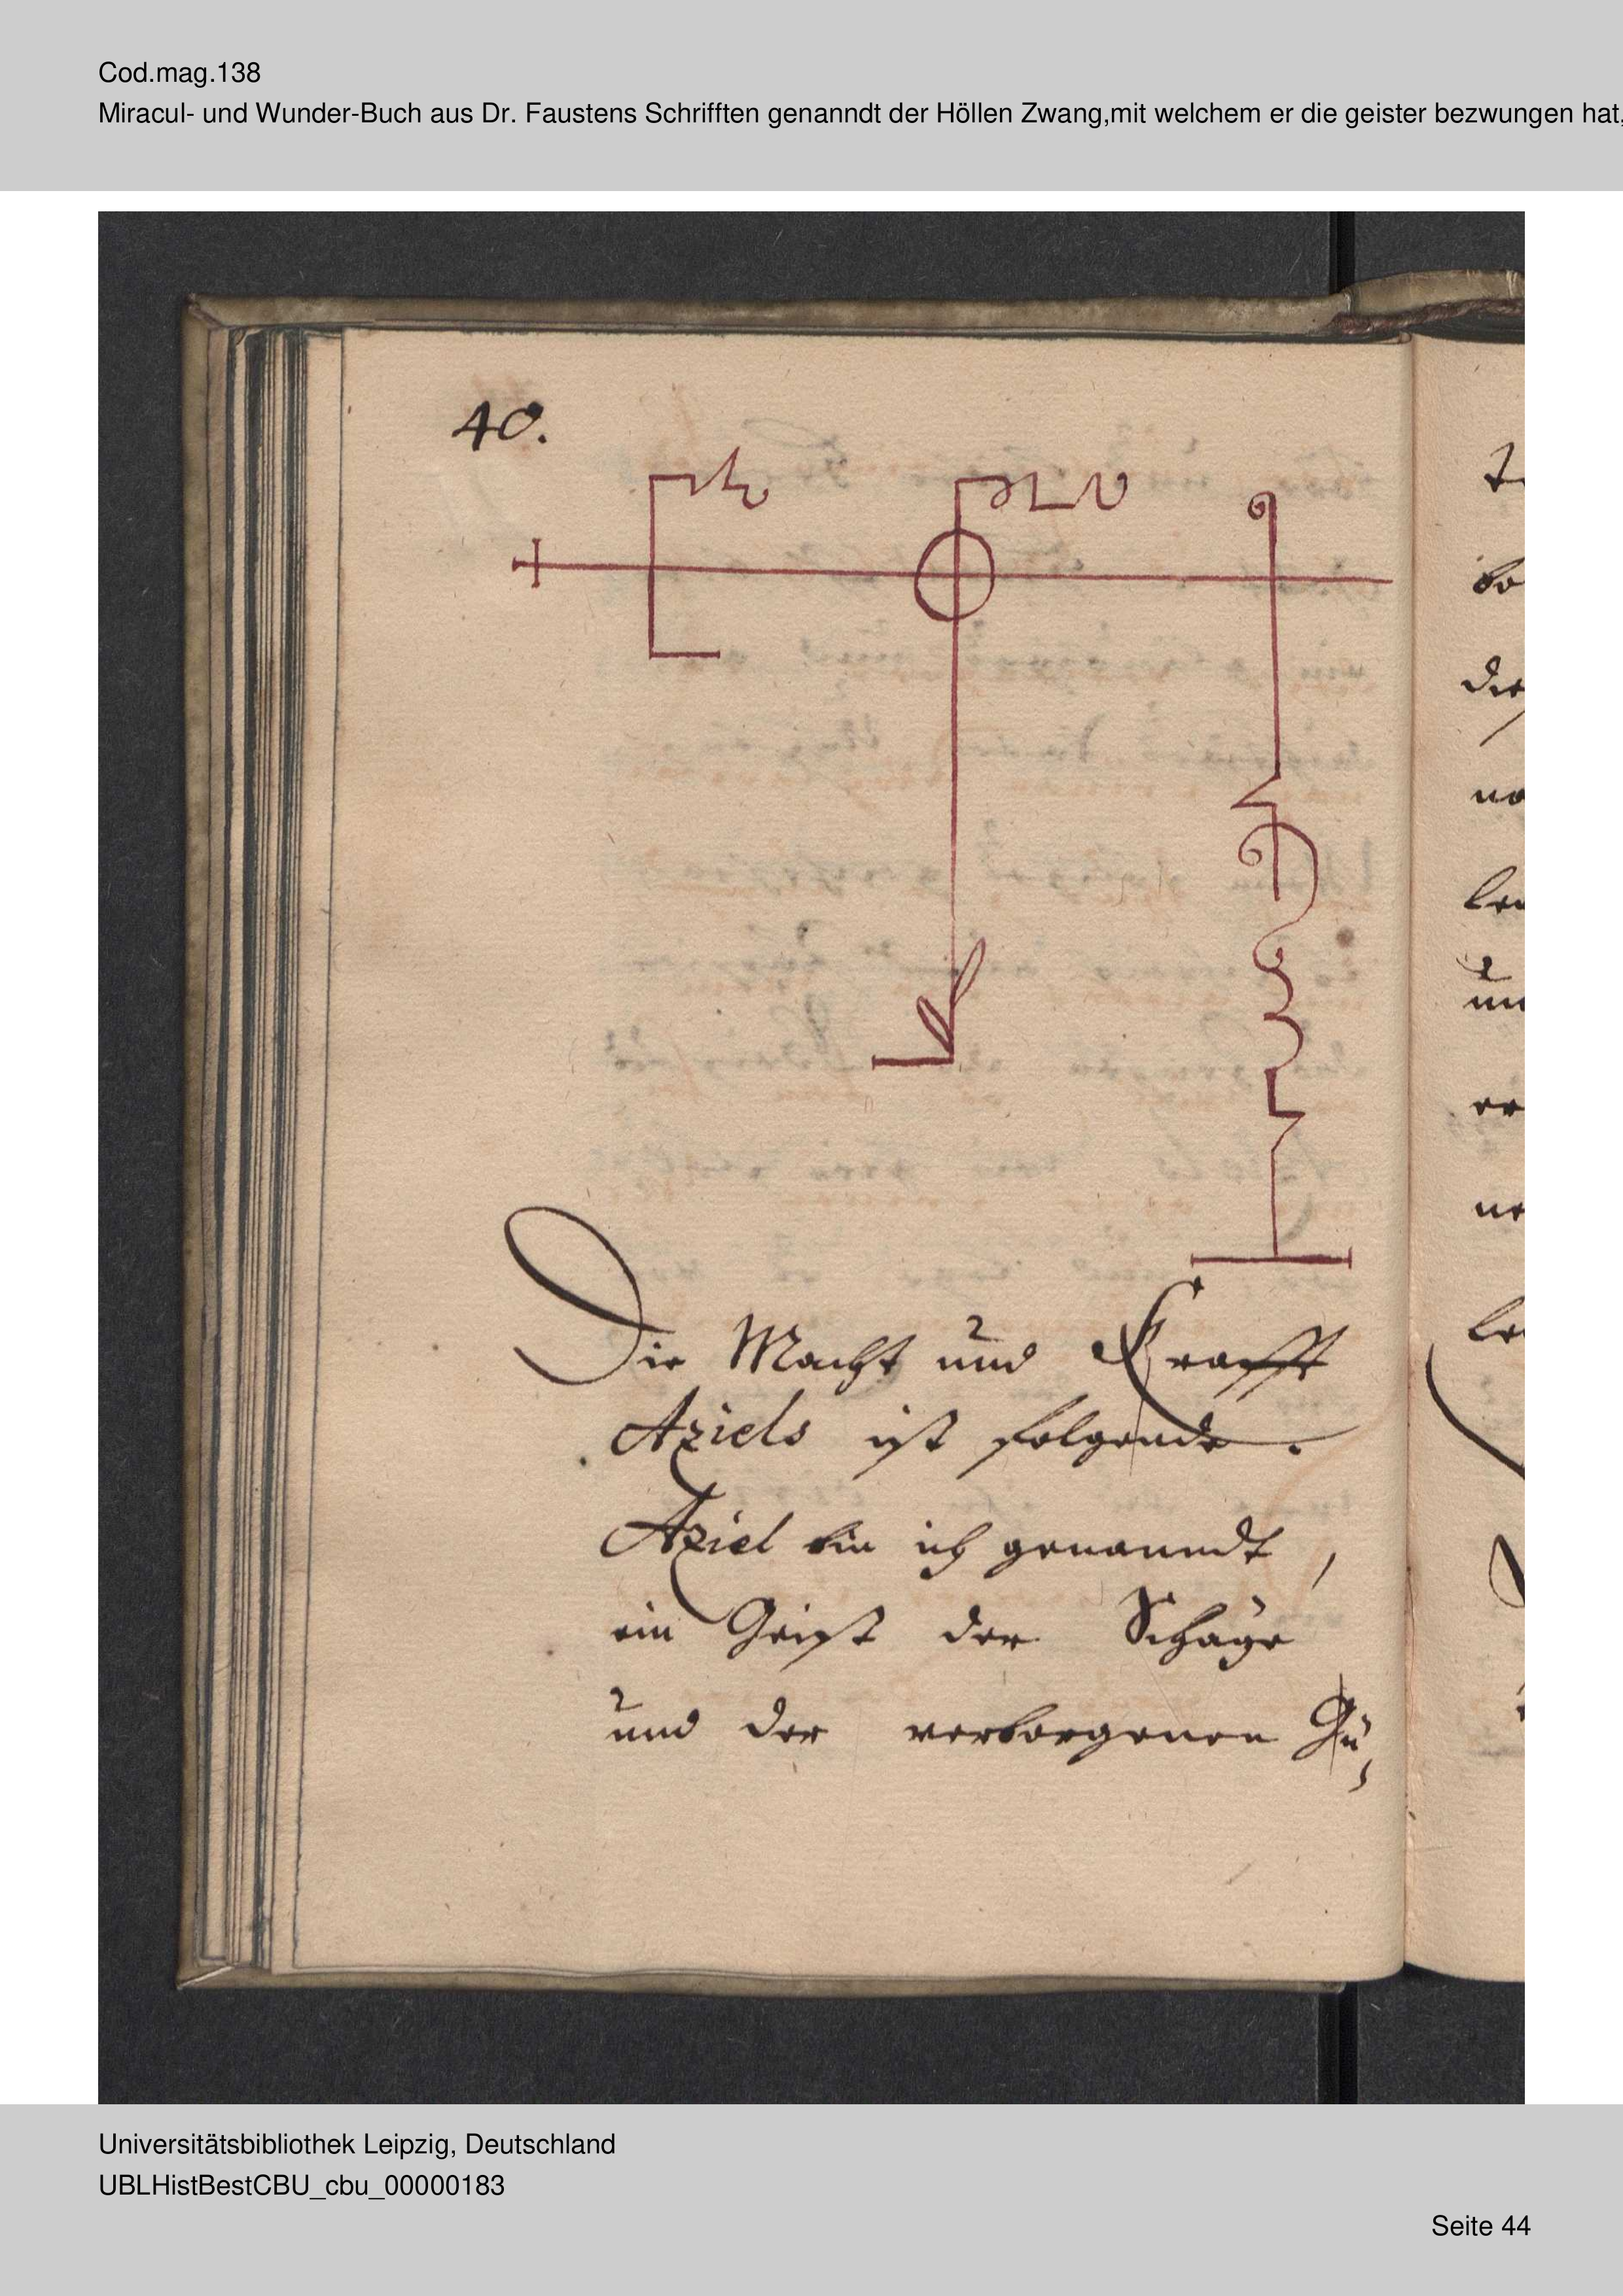 Cod.mag.138
Miracul- und Wunder-Buch aus Dr. Faustens Schrifften genanndt der Höllen Zwang,mit welchem er die geister bezwungen hat,
40.
Die Macht und Krafft
Aziels ist folgende.
Aziel bin ich genanndt,
ein Geist der Schäze
und der verborgenen Gü,
die
Universitätsbibliothek Leipzig, Deutschland
UBLHistBestCBU_cbu_00000183
Seite 44